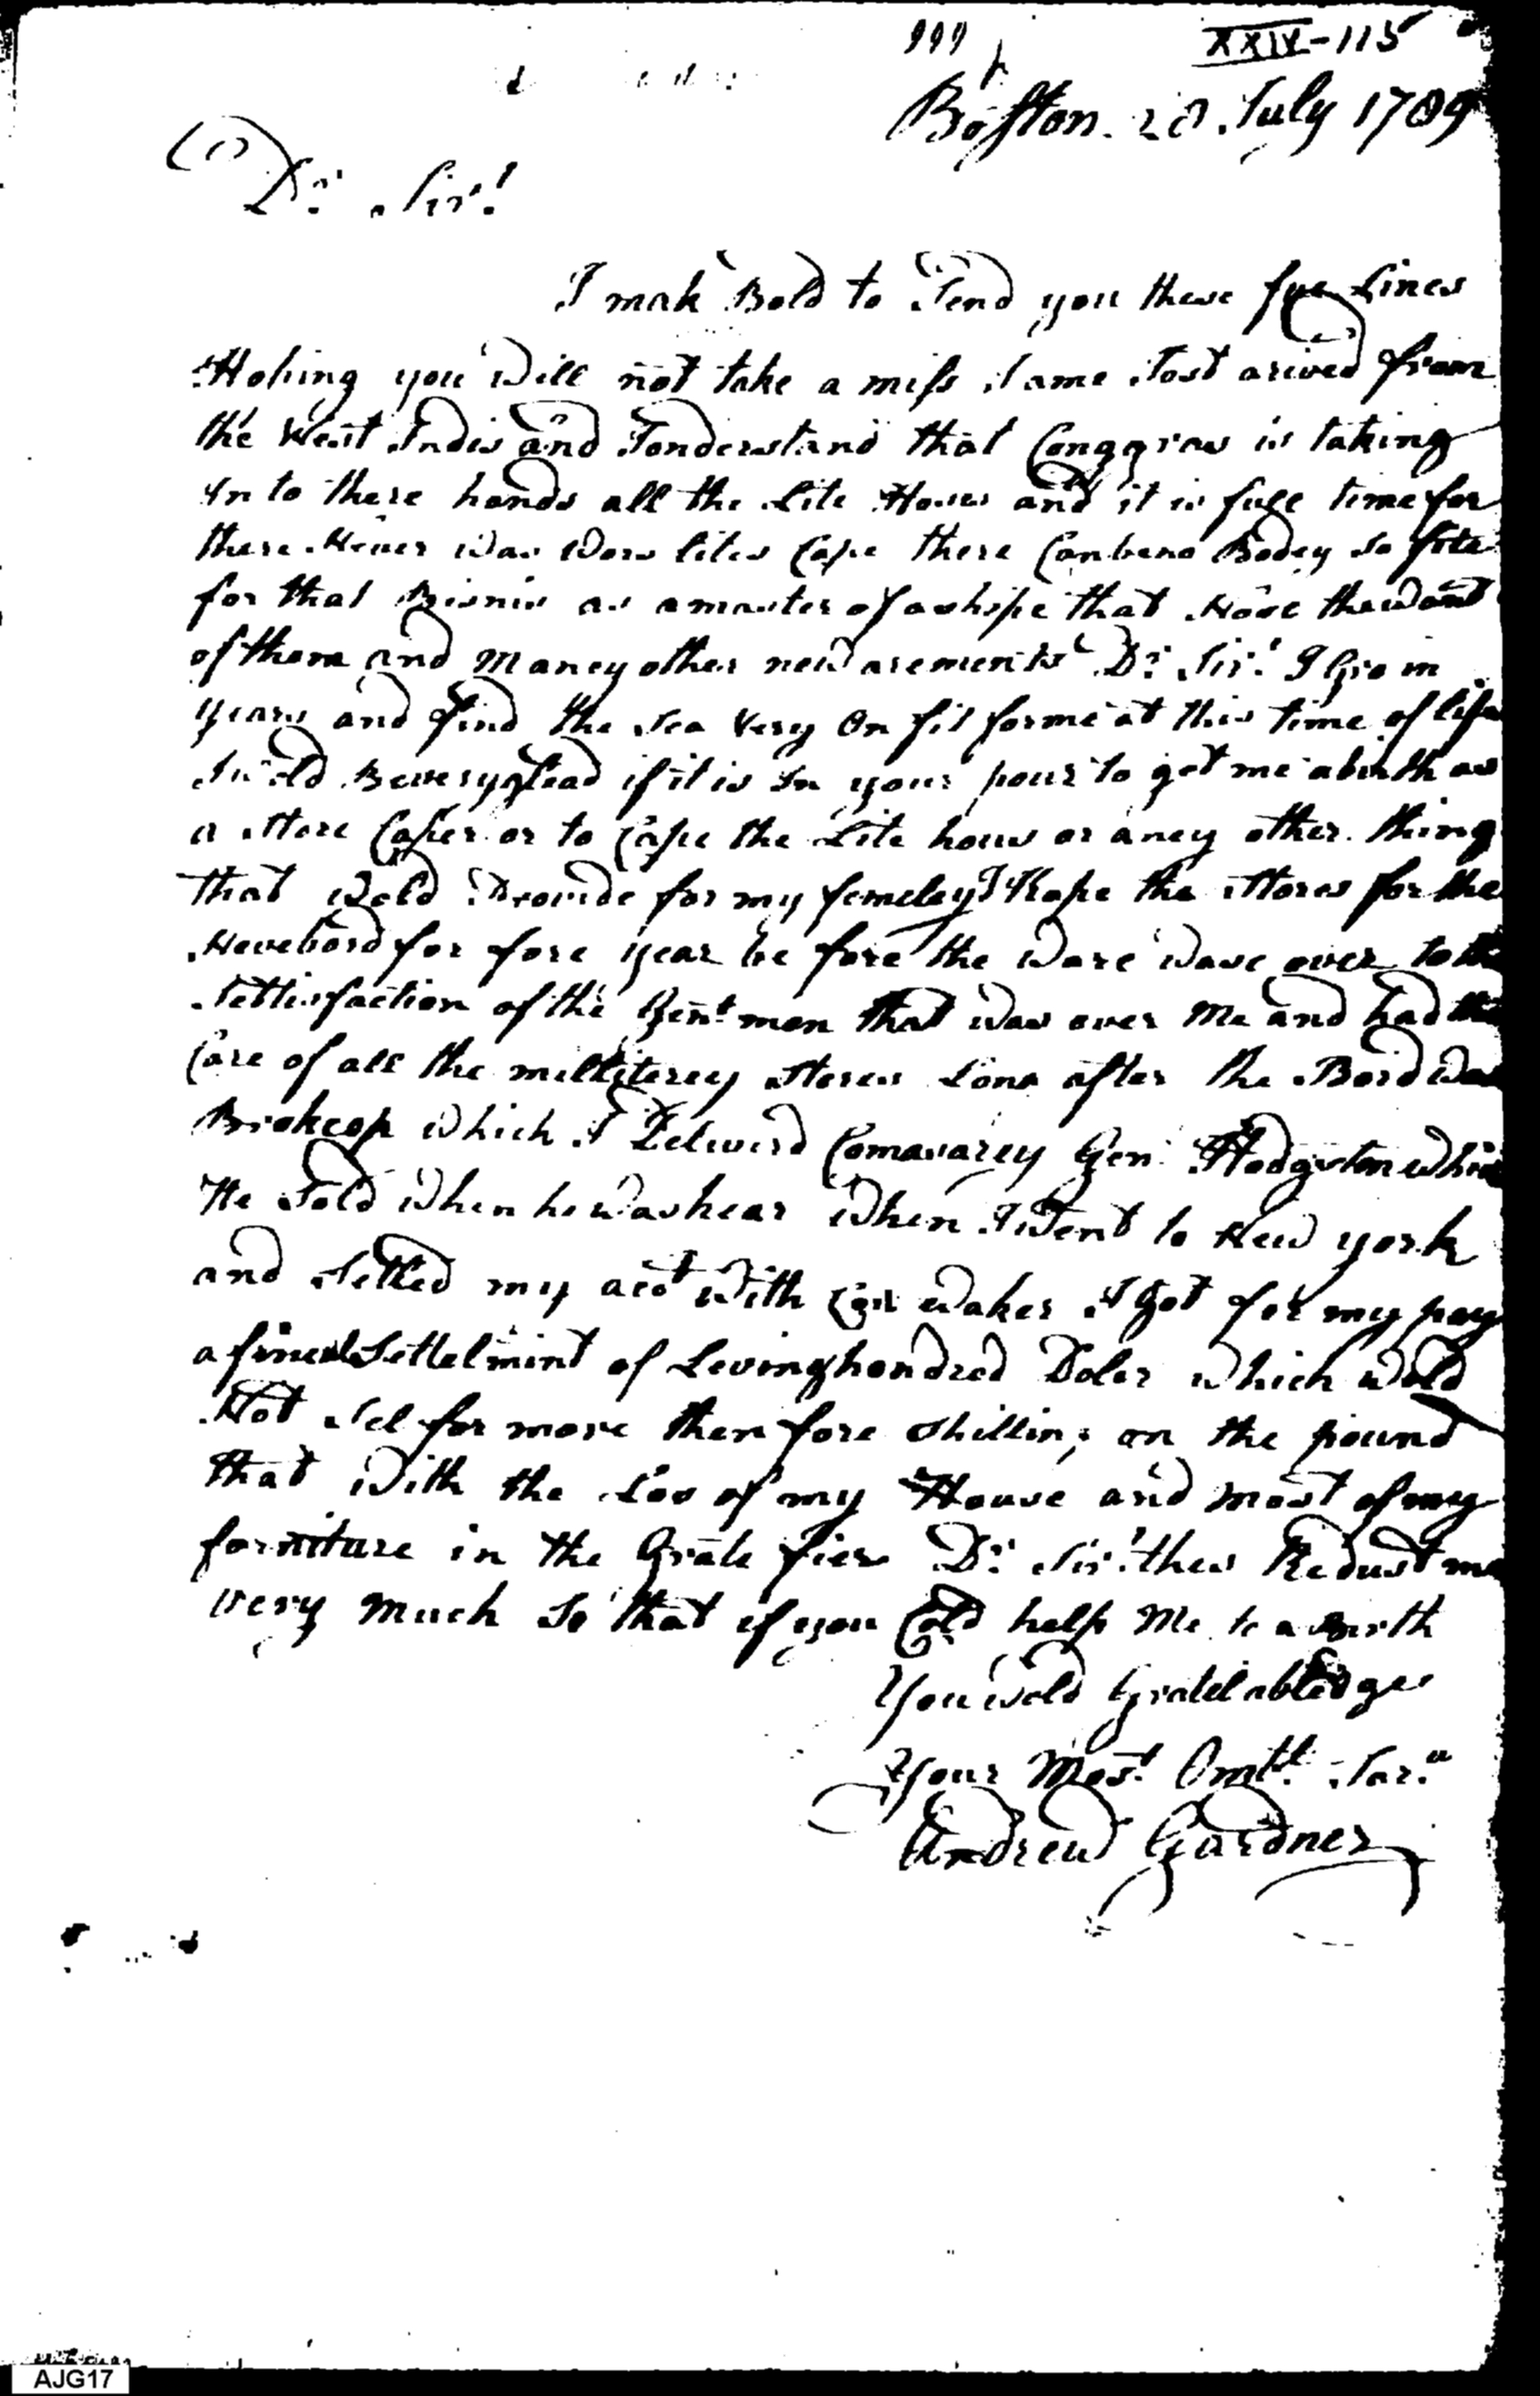 999
XXIV-115
Boston 28 July 1789
Dr Sir!
I mak Bold to Send you these fue Lines
Hoping you Will not take a miss I ame Jost arived from
the West Indis and Jonderstand that Conggras is taking
In to there hands all the Lite Houes and it is full time for
there Never Was Wors lites Cape there Can be no Bodey so fite
for that Bisnis as a master of a shipe that Nose the Want
of them and Maney other new arements Dr Sir! I Gro in
years and find the Sea Very On fit for me at this time of life
I wold Be very glead if it is In your pour to get me a birth as
a Store Caper or to Cape the Lite hous or aney other thing
that Wold Provide for my femeley I Kape the Stores for the
Nevebord for fore year be fore the Ware Wase over to the
Settisfaction of the Gentmen that Was over Me and had the
Care of all the milliterey Stores Long after the Bord Was
Brokeop Which I Deliverd Comasarey Gen Hodgston Which
He Sold When he Was hear When I Went to New york
and Setled my acot With Con Waker I Got for my pay
a finel Settelmint of Leving hondred Doler Which Wold
Not Sel for more then fore Shilling on the pound
that With the Los of my House and most of my
forniture in the Grate fier Dr Sir! thes Redust me
very Much So that if you Cold help Me to a Birth
You Wold Gratel abledge
Your Most Omtt Sar
Andrew Gardner
AJG17